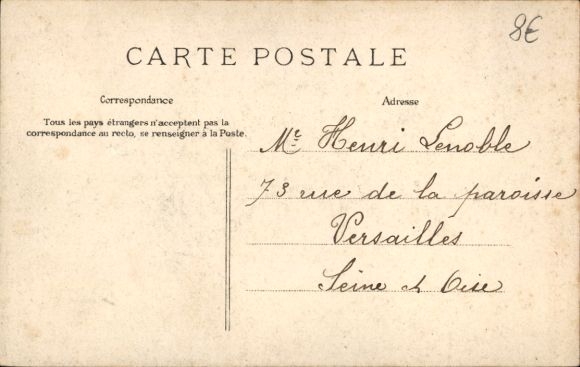 8€
CARTE POSTALE
Correspondance
Tous les pays étrangers n'acceptent pas la
correspondance au recto, se renseigner à la Poste.
Adresse
Mr Henri Lenoble
73 rue de la paroisse
Versailles
Seine et Oise